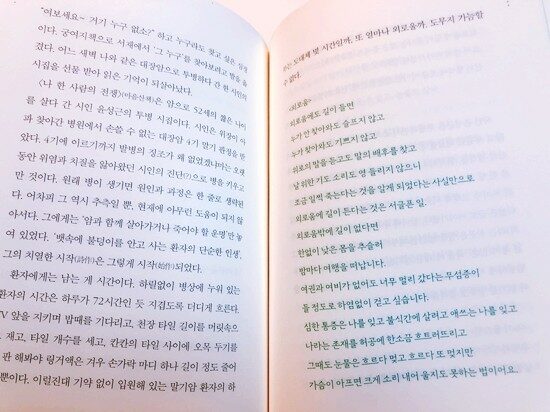 "여보세요~ 거기 누구 없소?" 하고 누구라도 찾고 싶은 심정
이다. 궁여지책으로 서재에서 '그 누구'를 찾아보려고
겼다. 어느 새벽 나와 같은 대장암으로 투병하다 간 한 시인의
시집을 선물 받아 읽은 기억이 되살아났다.
《나 한 사람의 전쟁》(마음산책)은 암으로 52세의 짧은 나이
를 살다 간 시인 윤성근의 투병 시집이다. 시인은 위장이 아
파 찾아간 병원에서 손쓸 수 없는 대장암 4기 말기 판정을 받
았다. 4기에 이르기까지 발병의 징조가 왜 없었겠냐마는 오랫
동안 위염과 치질을 앓아왔던 시인의 진단(?)으로 병을 키우고
만 것이다. 원래 병이 생기면 원인과 과정은 한 줄로 생략된
다. 어차피 그 역시 추측일 뿐, 현재에 아무런 도움이 되지 않
아서다. 그에게는 '암과 함께 살아가거나 죽어야 할 운명'만 놓
여 있었다. '뱃속에 불덩이를 안고 사는 환자의 단순한 인생',
그의 치열한 시작(詩作)은 그렇게 시작(始作)되었다.
환자에게는 남는 게 시간이다. 하릴없이 병상에 누워 있는
환자의 시간은 하루가 72시간인 듯 지겹도록 더디게 흐른다.
TV 앞을 지키며 밤때를 기다리고, 천장 타일 길이를 머릿속으
재고, 타일 개수를 세고, 칸칸의 타일 사이에 오목 두기를
관 해봐야 링거액은 겨우 손가락 마디 하나 길이 정도 줄어
뿐이다. 이럴진대 기약 없이 입원해 있는 말기암 환자의 하
루는 도대체 몇 시간일까, 또 얼마나 외로울까, 도무지 가늠할
수 없다.
〈외로움〉
외로움에도 길이 들면
누가 안 찾아와도 슬프지 않고
누가 찾아와도 기쁘지 않고
위로의 말을 듣고도 말의 배후를 찾고
날 위한 기도 소리도 영 들리지 않으니
조금 일찍 죽는다는 것을 알게 되었다는 사실만으로
외로움에 길이 든다는 것은 서글픈 일.
외로움밖에 길이 없으면
한없이 낮은 몸을 추슬러
밤마다 여행을 떠납니다.
여권과 여비가 없어도 너무 멀리 갔다는 무섬증이
들 정도로 하염없이 걷고 싶습니다.
심한 통증은 나를 잊고 불식간에 살려고 애쓰는 나를 잊고
나라는 존재를 허공에 한소끔 흐트러뜨리고
그때도 눈물은 흐르다 멎고 흐르다 또 멎지만
가슴이 아프면 크게 소리 내어 울지도 못하는 법이어요.